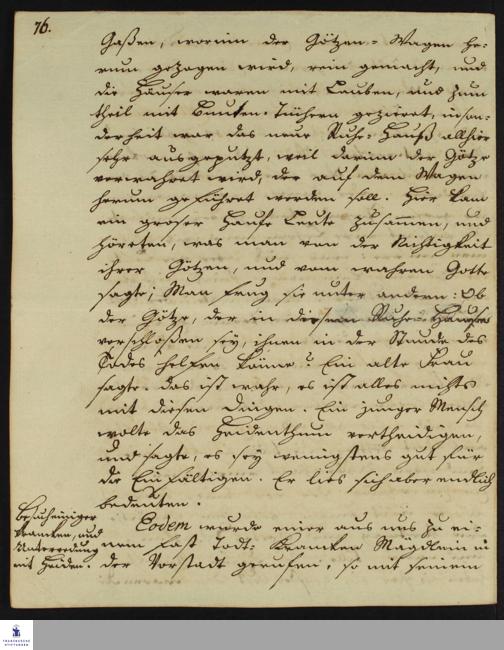 76.
Gaßen, worinn der Götzen-Wagen he-
rum gezogen wird, rein gemacht, und
die Häuser waren mit Lauben, und zum
theil mit bunten Tüchern gezieret, inson-
derheit war das neue Ruhe-Hauß allhier
sehr ausgeputzt, weil darinn der Götze
verwahret wird, der auf dem Wagen
herum geführet werden soll. Hier kam
ein groser Haufe Leute zusammen, und
höreten, was man von der Nichtigkeit
ihrer Götzen, und vom wahren Gotte
sagte; Man frug sie unter andern: Ob
der Götze, der in diesem Ruhe-Hause
verschloßen sey, ihnen in der Stunde des
Todes helfen könne? Ein alte Frau
sagte: das ist wahr, es ist alles nichts
mit diesen Dingen. Ein junger Mensch
wolte das Heidenthum vertheidigen,
und sagte, es sey wenigstens gut für
die Einfältigen. Er lies sich aber endlich
bedeuten.
Eodem wurde einer aus uns zu ei-
nem fast Todt-Krancken Mägdlein in
der Vorstadt gerufen, so mit seinem
Besuch einiger
Krancken, und
Unterredung
mit Heiden.
FRANCKESCHE
STIFTUNGEN